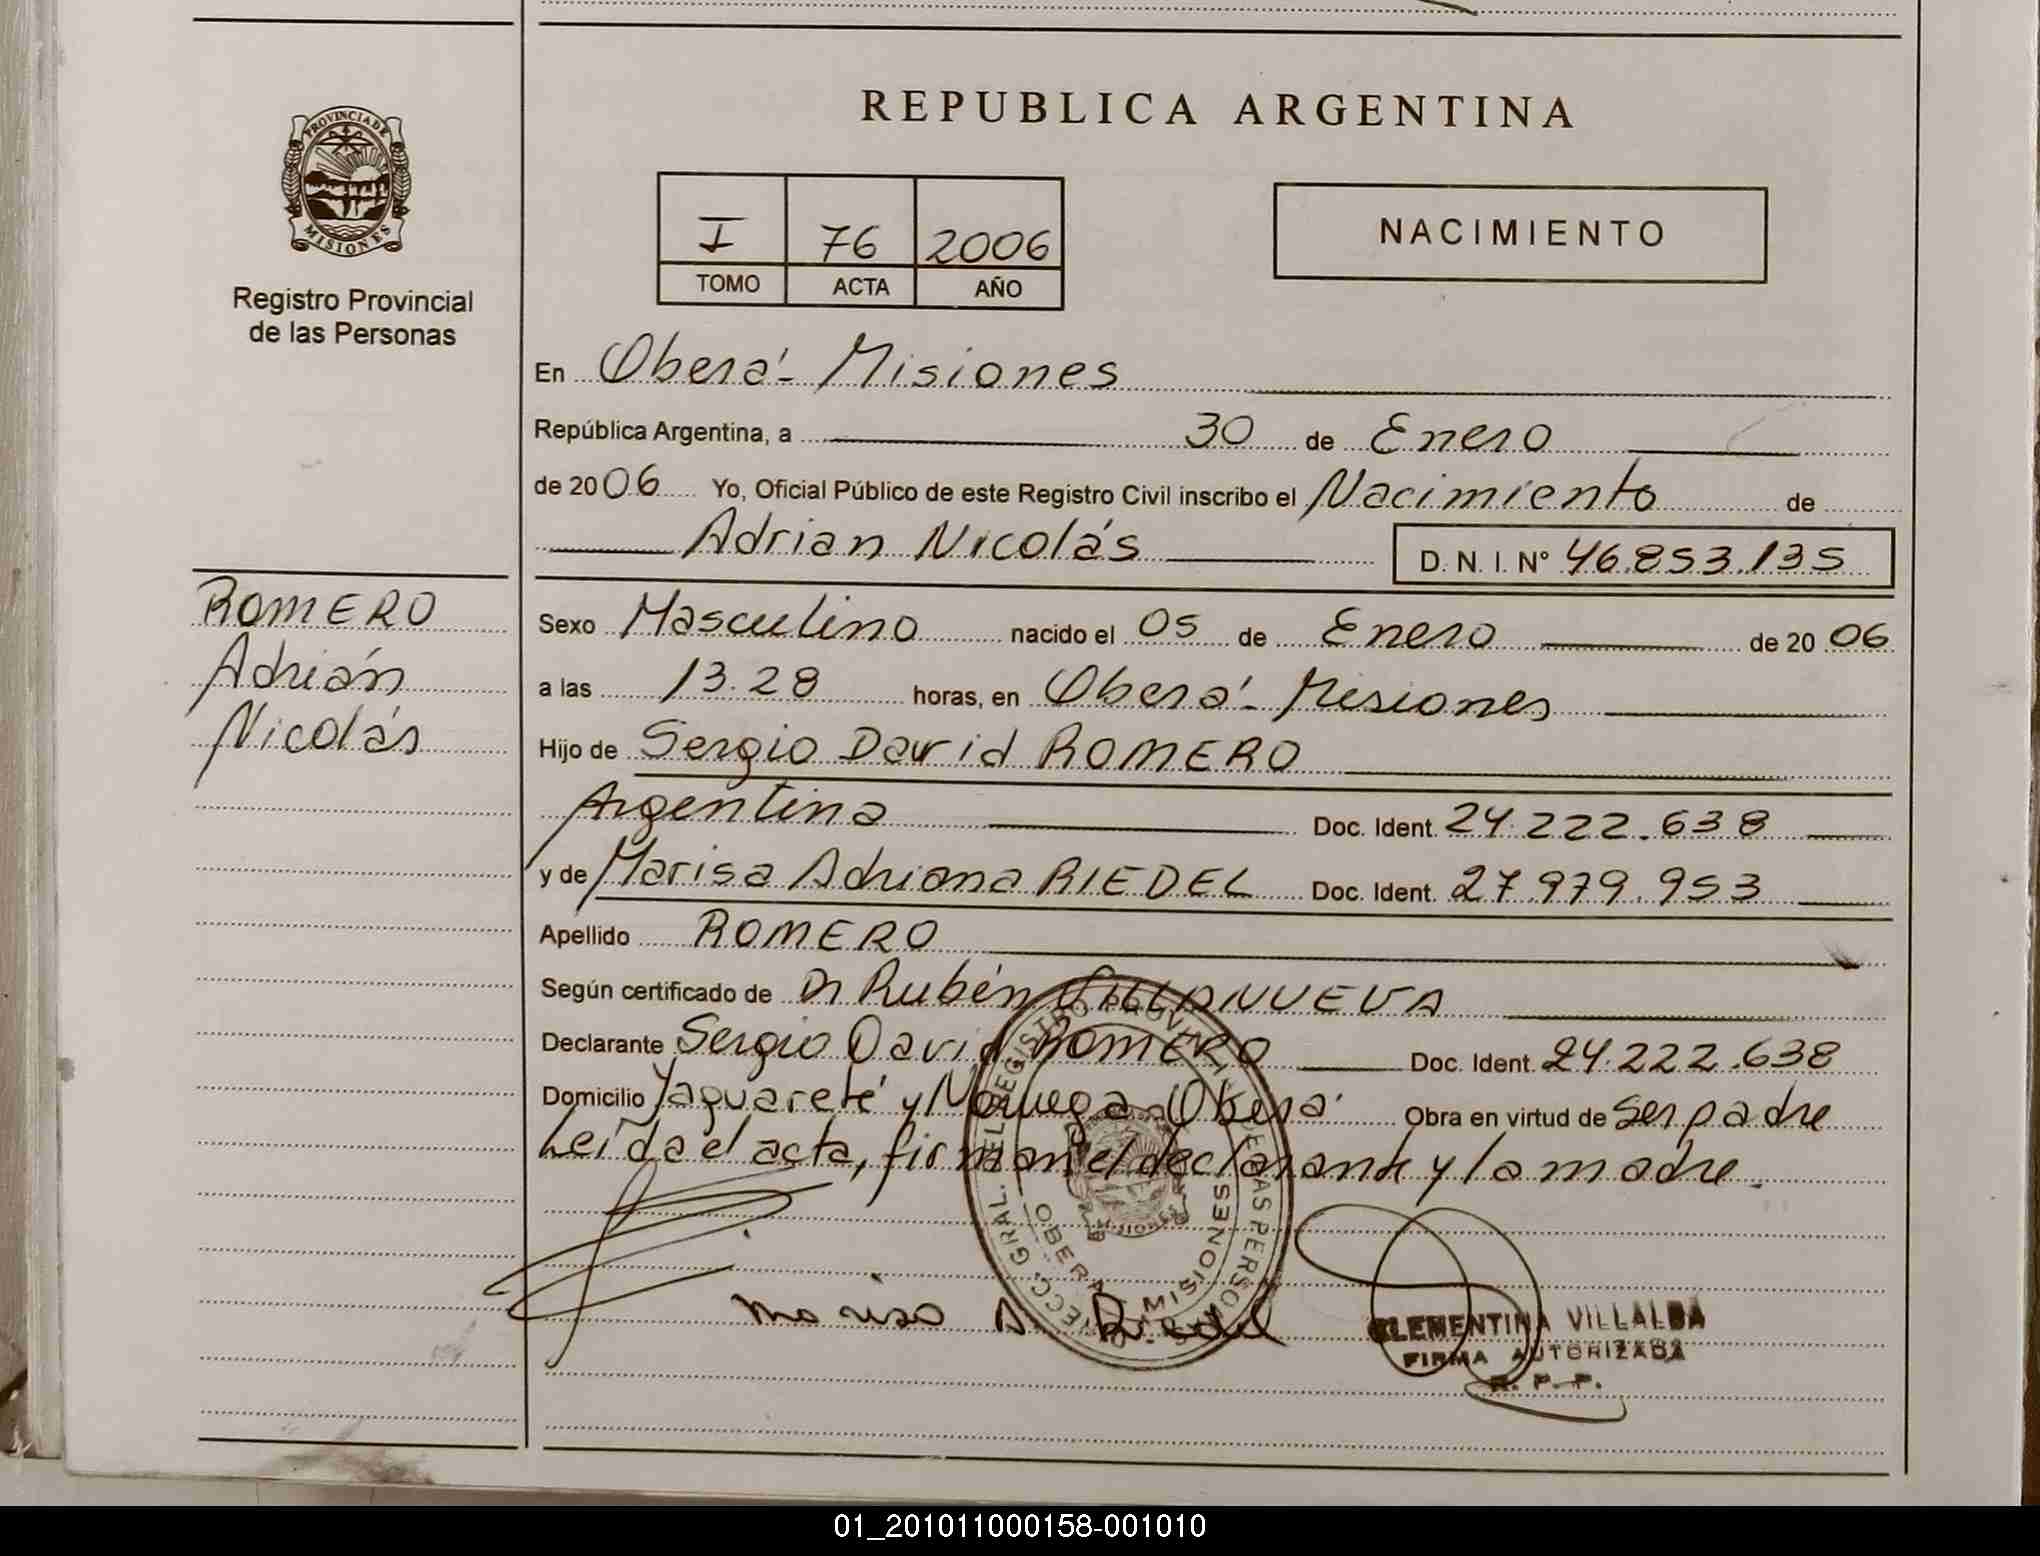 REPUBLICA ARGENTINA
PROVINCIA DE
MISIONES
Registro Provincial
de las Personas
I 76 2006
TOMO ACTA AÑO
NACIMIENTO
En Oberá - Misiones
República Argentina, a 30 de Enero
de 2006 Yo, Oficial Público de este Registro Civil inscribo el Nacimiento de
Adrian Nicolás D. N. I. Nº 46.853.135
ROMERO
Adrián
Nicolás
Sexo Masculino nacido el 05 de Enero de 2006
a las 13.28 horas, en Oberá - Misiones
Hijo de Sergio David ROMERO
Argentina Doc. Ident. 24.222.638
y de Marisa Adriana RIEDEL Doc. Ident. 27.979.953
Apellido ROMERO
Según certificado de Dr Rubén VILLANUEVA
Declarante Sergio David ROMERO Doc. Ident. 24.222.638
Domicilio Yaguareté y Noruega Oberá Obra en virtud de Ser padre
Leída el acta, firman el declarante y la madre.
OBERA - MISIONES
Marisa A Riedel
CLEMENTINA VILLALBA
FIRMA AUTORIZADA
R. P. P.
01_201011000158-001010